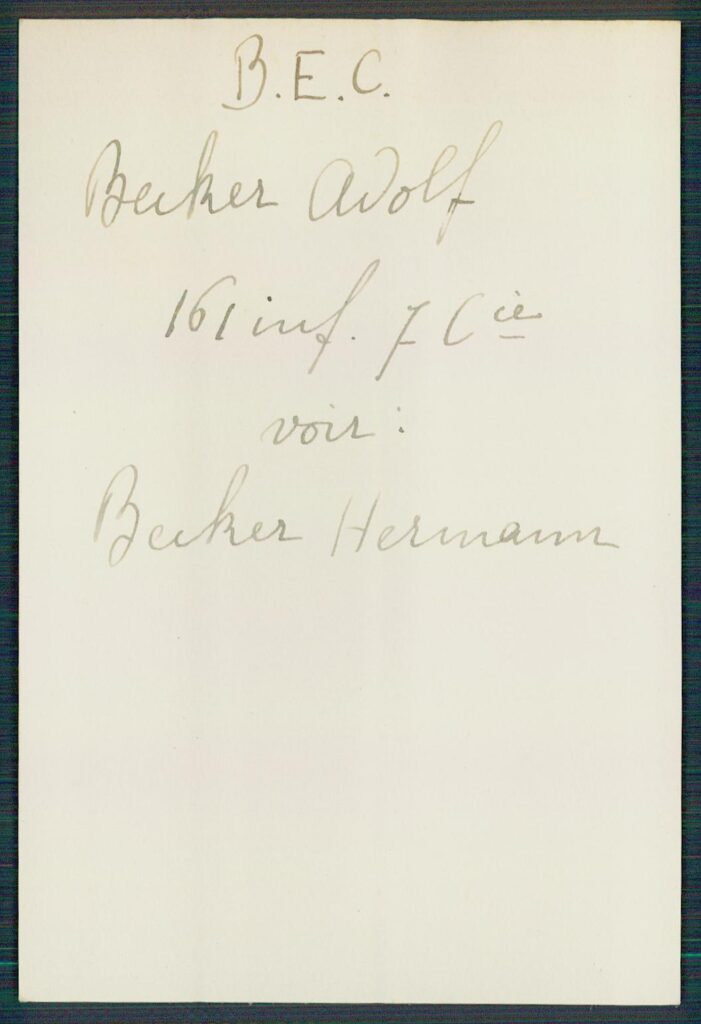 B.E.C.
Becker Adolf
161 inf. 7 Cie
voir :
Becker Hermann